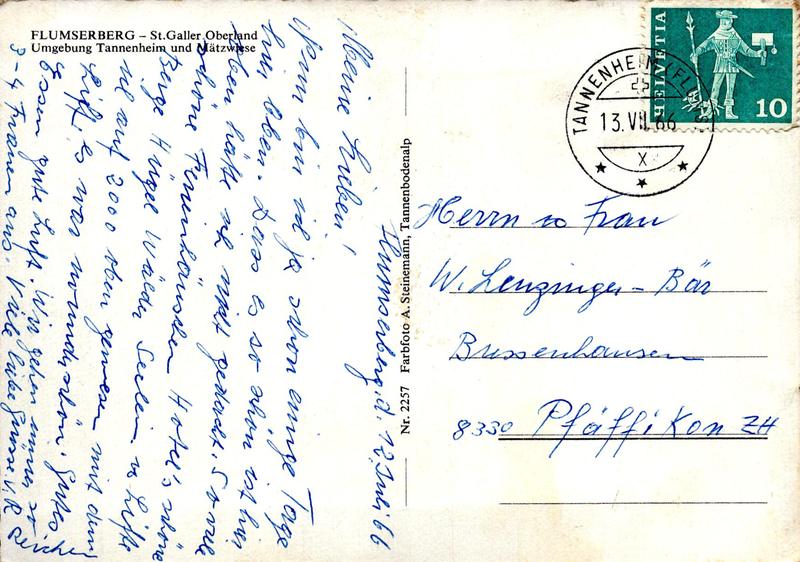 FLUMSERBERG – St.Galler Oberland
Umgebung Tannenheim und Mätzwiese
Flumserberg, d. 12. Juli 66
Meine Lieben!
Nun bin ich ja schon einige Tage
hier oben. Dass es so schön ist hier
oben hätte ich nicht gedacht. So viele
schöne Ferienhäuschen Hotel's schöne
Berge Hügel Wälder Seelein u Lifte
auf 2000 oben gewesen mit dem
Lift, es war wunderschön. Gutes
Essen gute Luft. Wir gehen immer so
3-4 Frauen aus. Viele liebe Grüsse v. R
Nr. 2257 Farbfoto A. Steinemann, Tannenbodenalp
HELVETIA
10
TANNENHEIM (FLUMS
13.VII.66
X
Herrn u Frau
W. Lenzinger – Bär
Bussenhausen
8330 Pfäffikon ZH